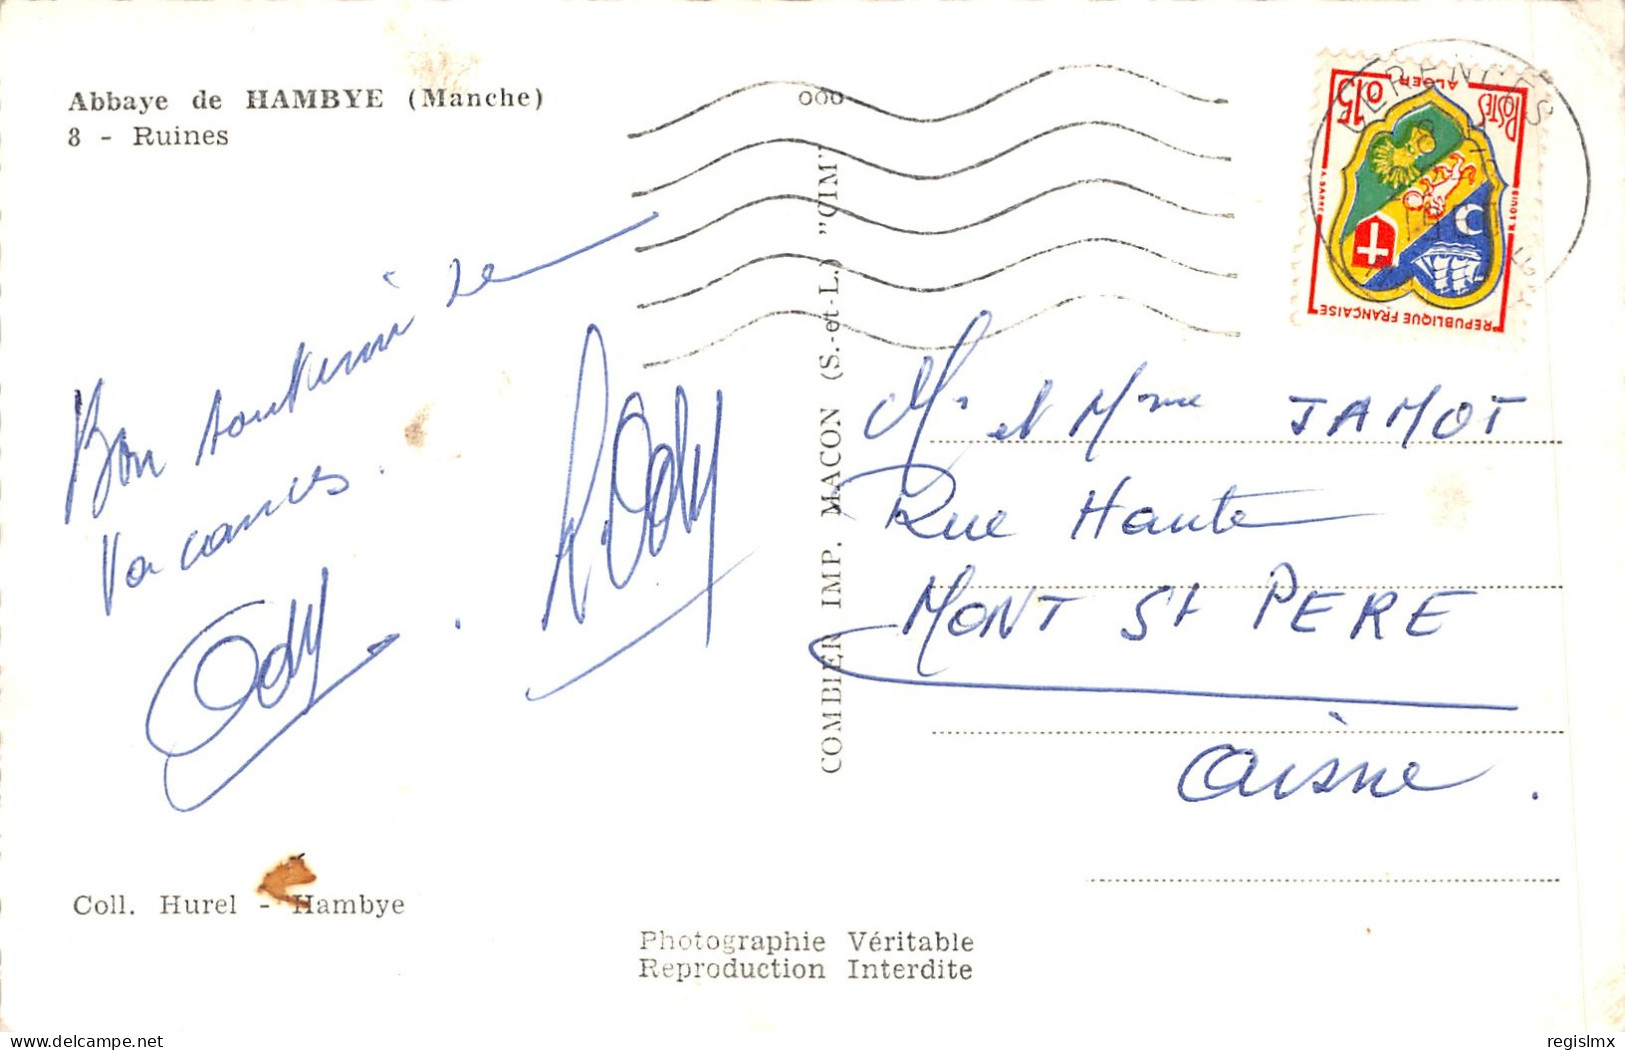 Abbaye de HAMBYE (Manche)
8 - Ruines
Bon souvenir de
Vacances.
Ody. R. Ody
Coll. Hurel - Hambye
COMBIER IMP. MACON (S.-et-L.) "CIM"
Photographie Véritable
Reproduction Interdite
0,15
ALGER
POSTES
REPUBLIQUE FRANÇAISE
Mr et Mme JAMOT
Rue Haute
MONT St PERE
Aisne.
regislmx